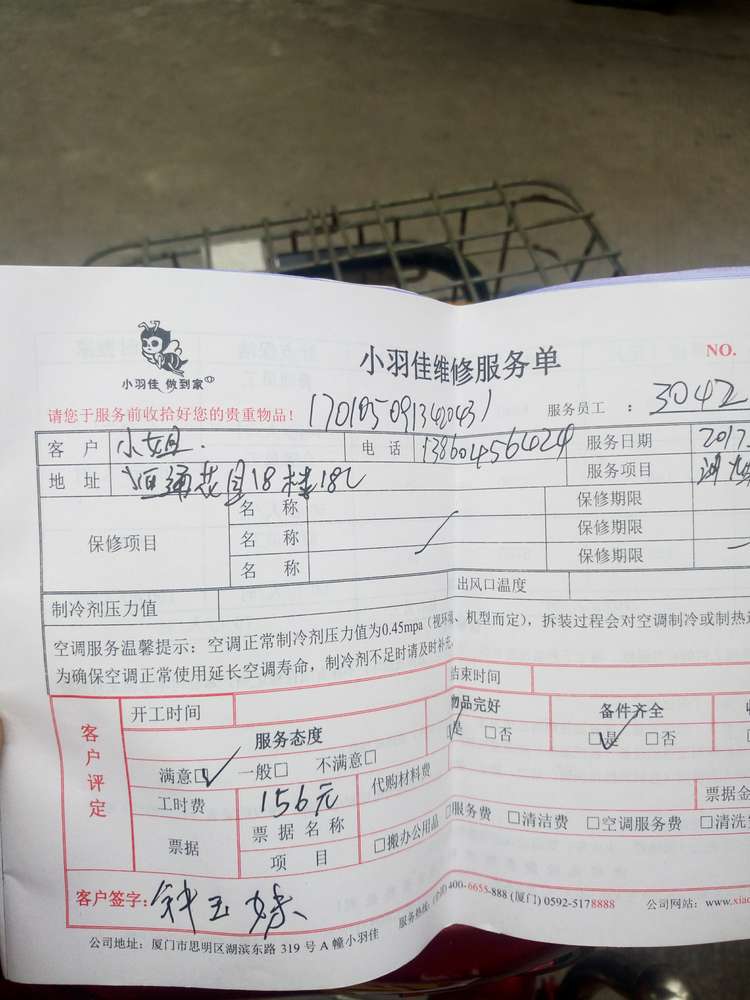 小羽佳 做到家
小羽佳维修服务单
NO.
请您于服务前收拾好您的贵重物品！
服务员工 ： 3042
客 户 小姐. 电 话 13860456424 服务日期 2017.
地 址 恒通花园18楼18C 服务项目
保修项目
名 称 保修期限
名 称 保修期限
名 称 保修期限
制冷剂压力值 出风口温度
空调服务温馨提示：空调正常制冷剂压力值为0.45mpa（视环境、机型而定），拆装过程会对空调制冷或制热
为确保空调正常使用延长空调寿命，制冷剂不足时请及时补充。
客户评定
开工时间 结束时间
服务态度 物品完好 备件齐全
满意☑ 一般□ 不满意□ ☑是 □否 ☑是 □否
工时费 156元 代购材料费
票据 票据名称 票据金
项 目 □搬办公用品 □服务费 □清洁费 □空调服务费 □清洗
客户签字：钟玉
服务热线：(全国)400-6655-888 (厦门) 0592-5178888 公司网站：www.xiao
公司地址：厦门市思明区湖滨东路 319 号 A 幢小羽佳